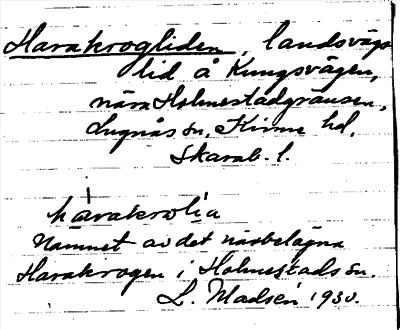 Harakrogliden, landsvägs
lid å Kungsvägen,
nära Holmestadgränsen,
Lugnås sn, Kinne hd,
Skarab. l.
harakrolia
Namnet av det närbelägna
Harakrogen i Holmestads sn.
L. Madsén 1930.